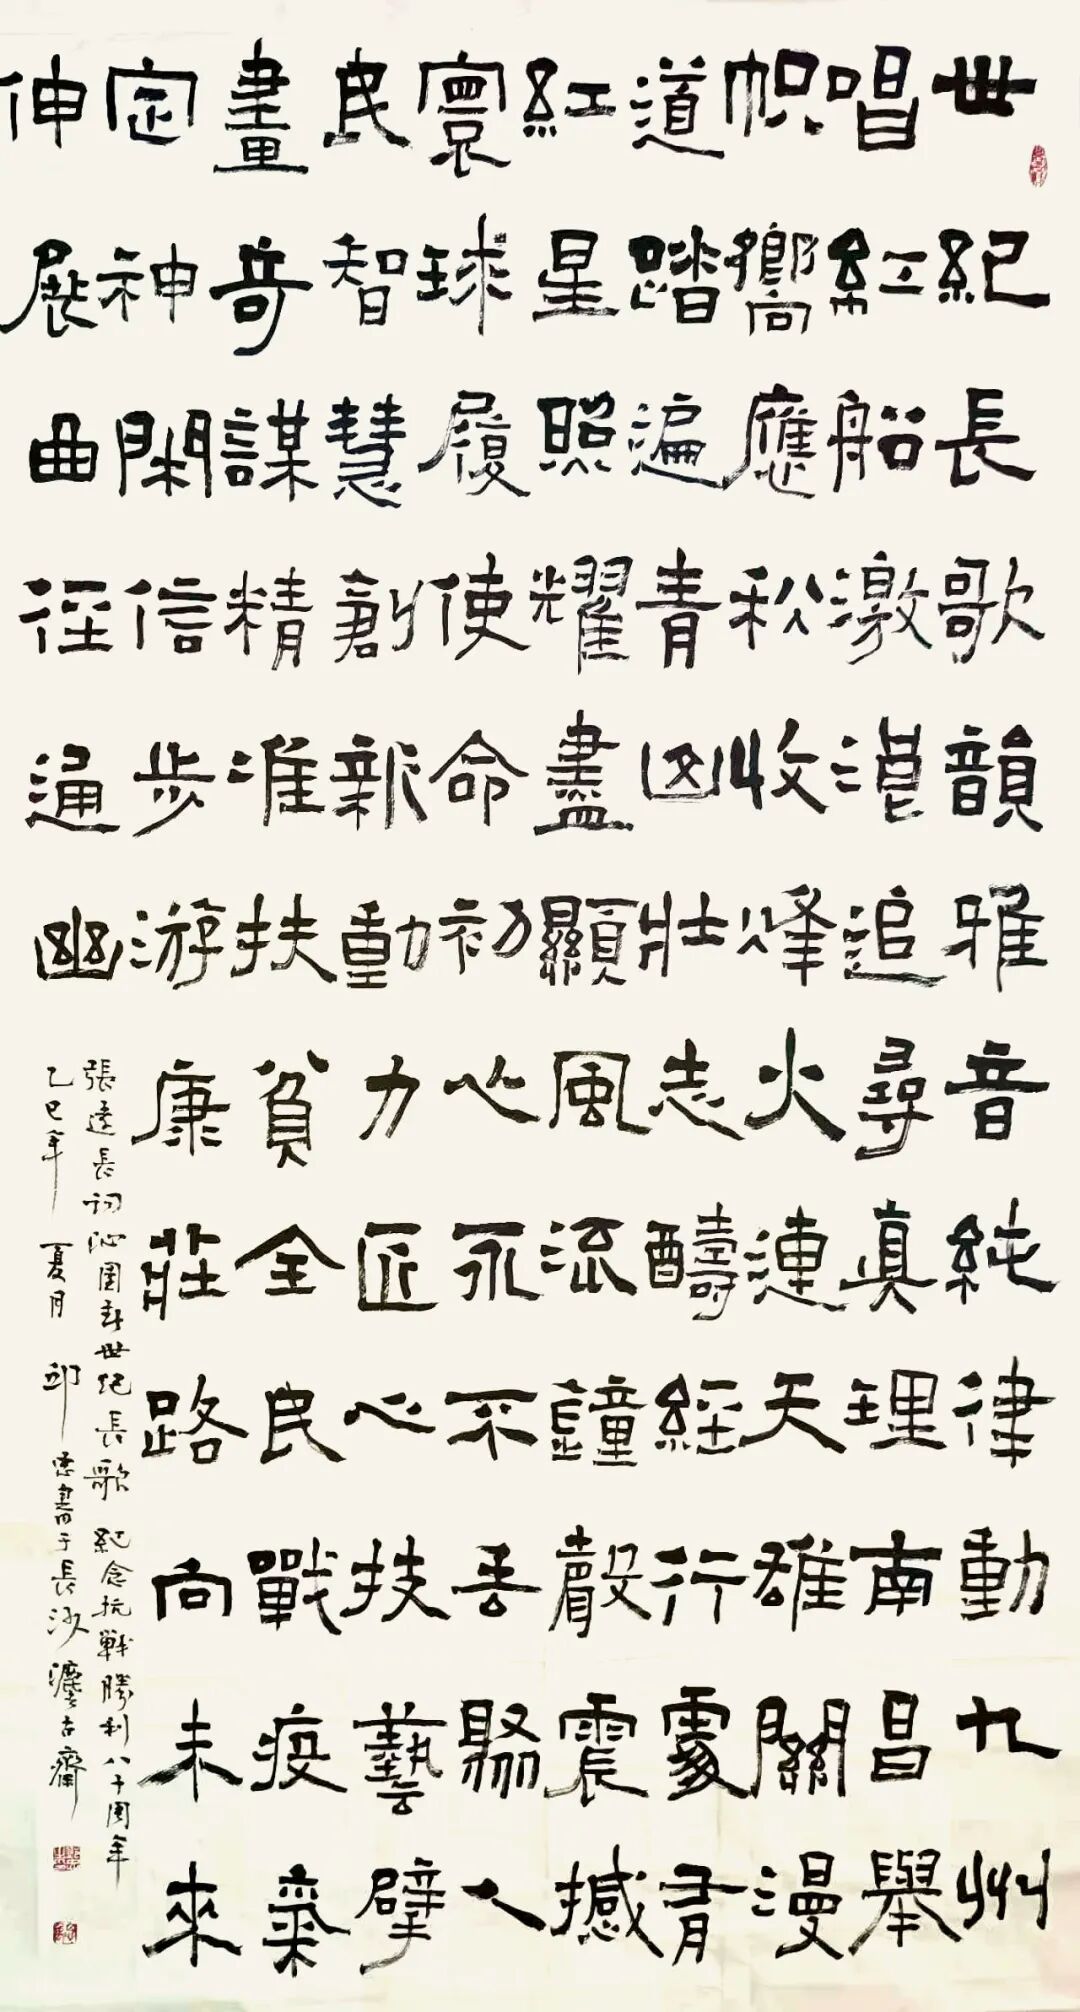 世紀長歌韻雅音純律動九州
唱紅船激浪追尋真理南昌舉
帜嚮應秋收烽火連天雄關漫
道踏遍青山壯志酬經行處有
紅星照耀盡顯風流鐘聲震撼
寰球履使命初心永不丟聚人
民智慧創新動力匠心技藝擘
畫奇謀精准扶貧全民戰疫氣
定神閑信步游康莊路向未來
伸展曲徑通幽
張達長詞沁園春世紀長歌 紀念抗戰勝利八十周年
乙巳年夏月 邱書于長沙古齋